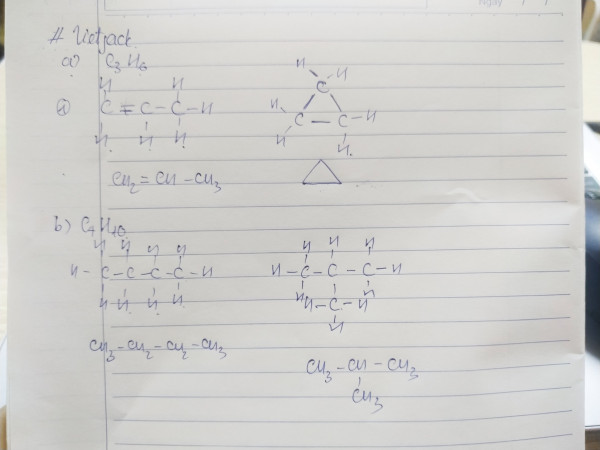 # Vietjack
a) C3H6
H H
C = C - C - H
H H H
H H
C
H C — C - H
H H
CH2 = CH - CH3
b) C4H10
H H H H
H - C - C - C - C - H
H H H H
H H H
H - C - C - C - H
H H
H - C - H
H
CH3 - CH2 - CH2 - CH3
CH3 - CH - CH3
CH3